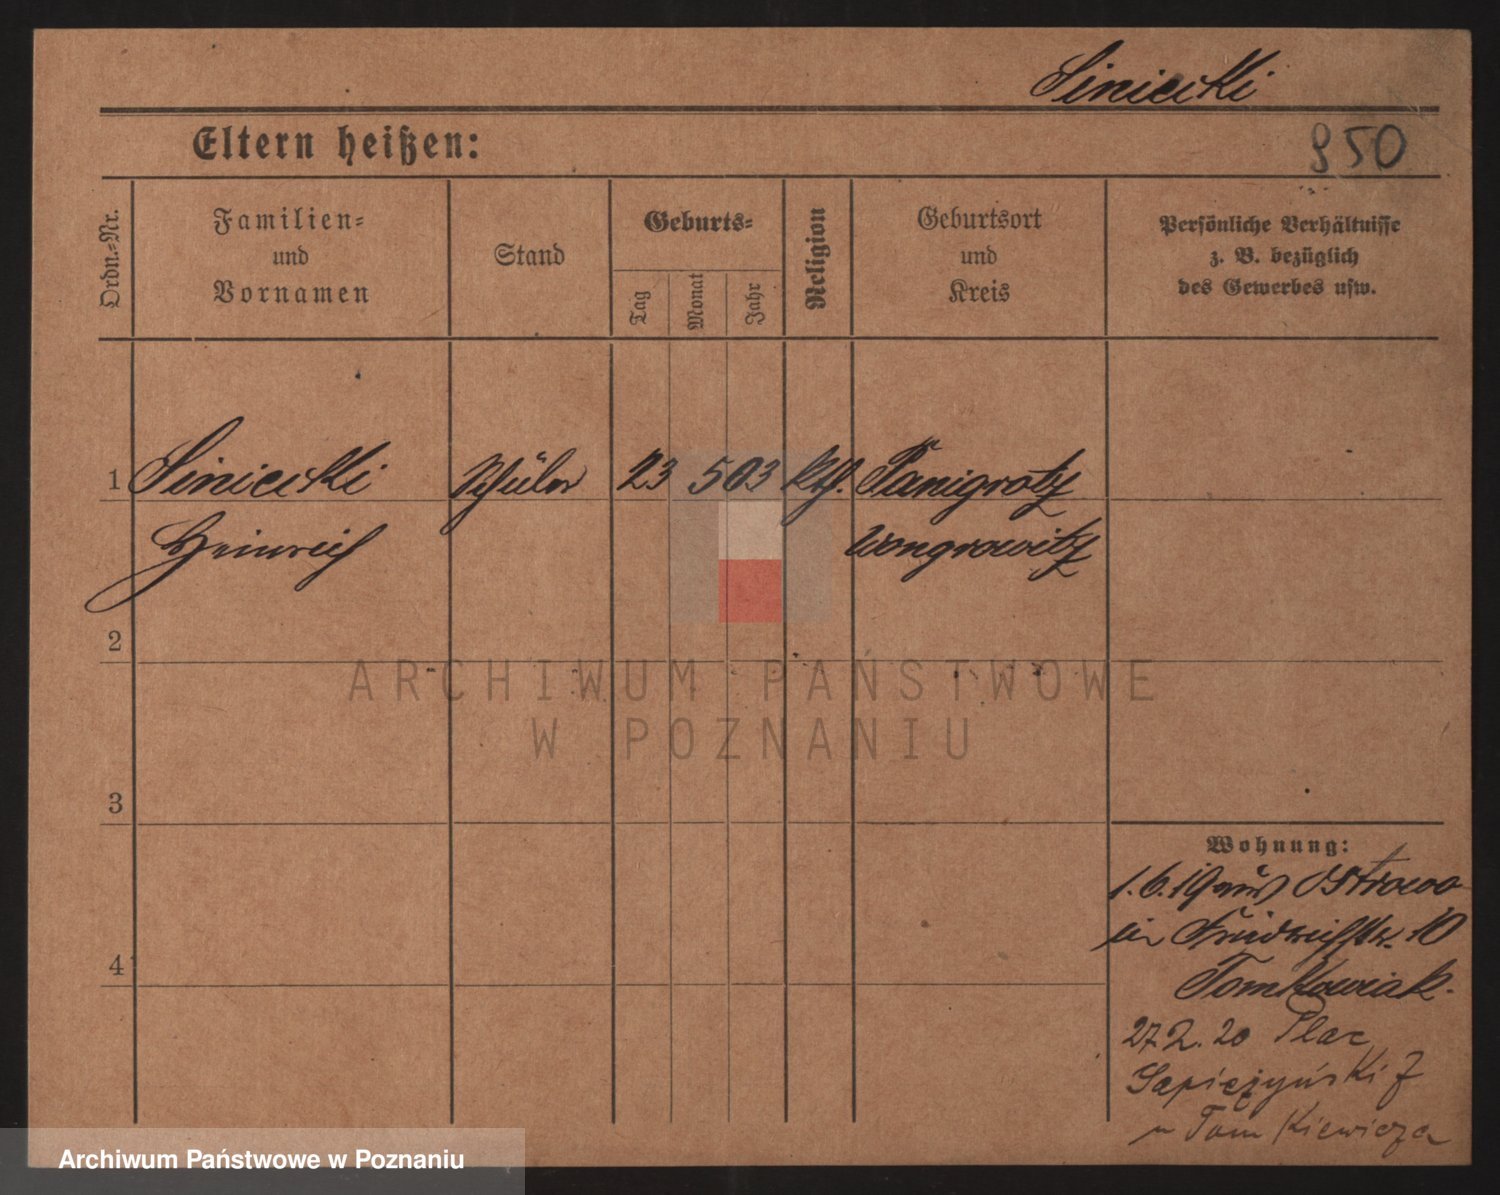 Siniecki
Eltern heißen:
850
Ordn.-Nr.
Familien-
und
Vornamen
Stand
Geburts-
Tag
Monat
Jahr
Religion
Geburtsort
und
Kreis
Persönliche Verhältnisse
z. B. bezüglich
des Gewerbes usw.
1 Siniecki Schüler 23 5 03 kth. Panigrotz
Heinrich Wongrowitz
2
ARCHIWUM PAŃSTWOWE
W POZNANIU
3
Wohnung:
1.6.19 aus Ostrowo
bei Friedrichstr. 10
Tomkowiak.
4
27.2.20 Plac
Sapieżyński 7
u Tomkiewicza
Archiwum Państwowe w Poznaniu